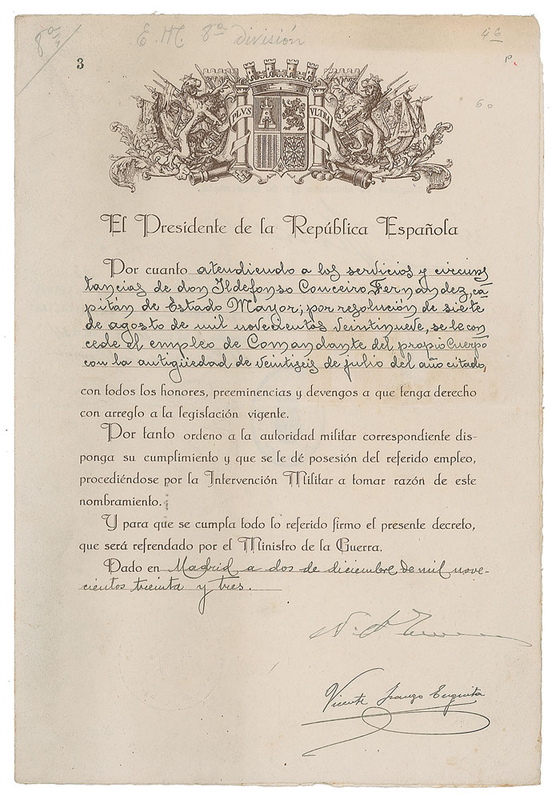 8ª
E. M. 8ª división
46
P.
3
60
PLVS VLTRA
El Presidente de la República Española
Por cuanto atendiendo a los servicios y circuns
tancias de don Ildefonso Couceiro Fernández, ca-
pitán de Estado Mayor; por resolución de siete
de agosto de mil novecientos veintinueve, se le con
cede el empleo de Comandante del propio Cuerpo
con la antigüedad de veintiseis de julio del año citado,
con todos los honores, preeminencias y devengos a que tenga derecho
con arreglo a la legislación vigente.
Por tanto ordeno a la autoridad militar correspondiente dis-
ponga su cumplimiento y que se le dé posesión del referido empleo,
procediéndose por la Intervención Militar a tomar razón de este
nombramiento.
Y para que se cumpla todo lo referido firmo el presente decreto,
que será refrendado por el Ministro de la Guerra.
Dado en Madrid a dos de diciembre de mil nove-
cientos treinta y tres.
Vicente Iranzo Enguita